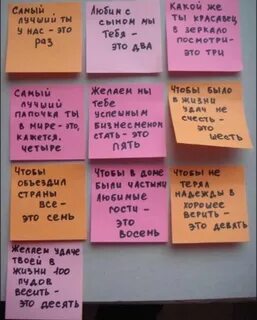 Самый
лучший ты
у нас - это
раз
Любим с
сыном мы
тебя -
это два
Какой же
ты красавец,
в зеркало
посмотри -
это три
Самый
лучший
папочка ты
в мире - это,
кажется,
четыре
Желаем мы
тебе
успешным
бизнесменом
стать - это
пять
Чтобы было
в жизни
удач не
счесть -
это
шесть
Чтобы
объездил
страны
все -
это семь
Чтобы в доме
были частыми
любимые
гости -
это
восемь
Чтобы не
терял
надежды в
хорошее
верить -
это девять
Желаем удаче
твоей в
жизни 100
пудов
весить -
это десять